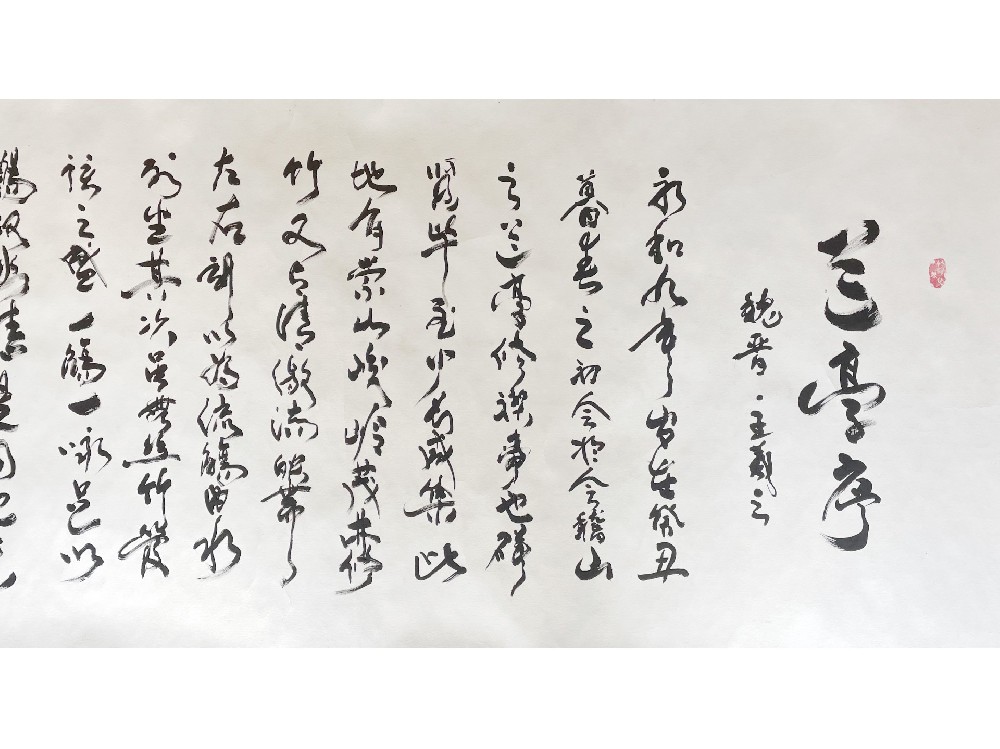 兰亭序
魏晋·王羲之
永和九年岁在癸丑
暮春之初会於会稽山
之兰亭修禊事也群
贤毕至少长咸集此
地有崇山峻岭茂林修
竹又有清激湍映带
左右引以为流觴曲水
列坐其次虽無丝竹管
弦之盛一觴一咏足以